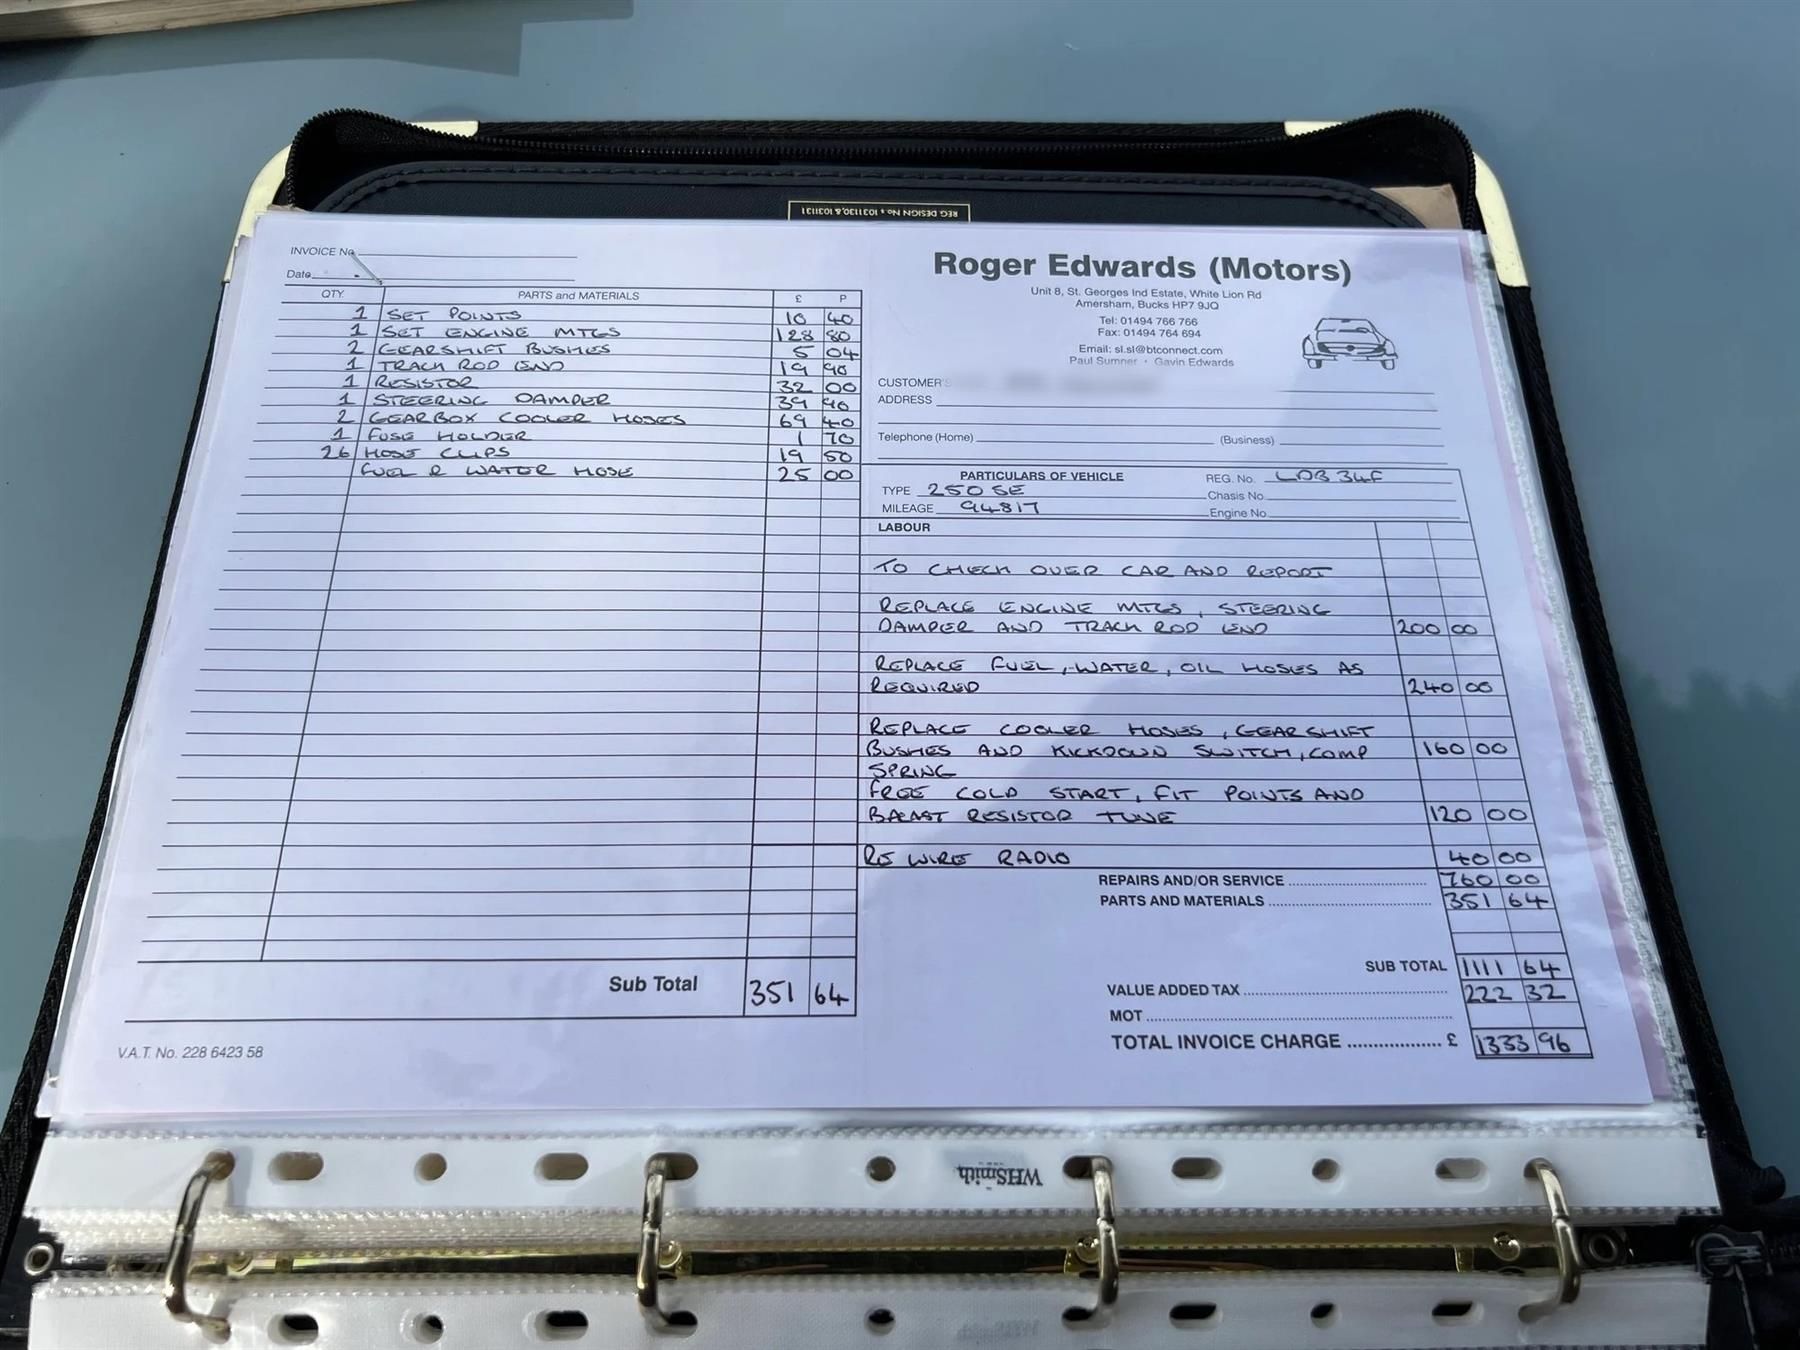 REG DESIGN Nos 1031130,& 1031131
INVOICE No
Date
QTY. PARTS and MATERIALS £ P
1 SET POINTS 10 40
1 SET ENGINE MTGS 128 80
2 GEARSHIFT BUSHES 5 04
1 TRACK ROD END 19 90
1 RESISTOR 32 00
1 STEERING DAMPER 39 90
2 GEARBOX COOLER HOSES 69 40
1 FUSE HOLDER 1 70
26 HOSE CLIPS 19 50
FUEL & WATER HOSE 25 00
Sub Total 351 64
V.A.T. No. 228 6423 58
Roger Edwards (Motors)
Unit 8, St. Georges Ind Estate, White Lion Rd
Amersham, Bucks HP7 9JQ
Tel: 01494 766 766
Fax: 01494 764 694
Email: sl.sl@btconnect.com
Paul Sumner • Gavin Edwards
CUSTOMER'S
ADDRESS
Telephone (Home) (Business)
PARTICULARS OF VEHICLE REG. No. LDB 34F
TYPE 250 SE Chasis No.
MILEAGE 94817 Engine No.
LABOUR
TO CHECK OVER CAR AND REPORT
REPLACE ENGINE MTGS, STEERING
DAMPER AND TRACK ROD END 200 00
REPLACE FUEL, WATER, OIL HOSES AS
REQUIRED 240 00
REPLACE COOLER HOSES, GEARSHIFT
BUSHES AND KICKDOWN SWITCH, COMP 160 00
SPRING
FREE COLD START, FIT POINTS AND
BALAST RESISTOR TUNE 120 00
RE WIRE RADIO 40 00
REPAIRS AND/OR SERVICE 760 00
PARTS AND MATERIALS 351 64
SUB TOTAL 1111 64
VALUE ADDED TAX 222 32
MOT
TOTAL INVOICE CHARGE £ 1333 96
WHSmith